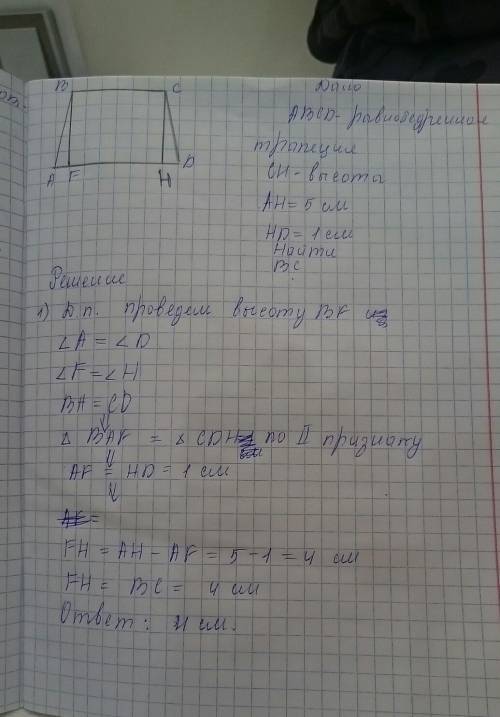 B C
A F H D
Дано
ABCD - равнобедренная
трапеция
CH - высота
AH = 5 см
HD = 1 см
Найти
BC
Решение
1) Д.п. проведем высоту BF
∠A = ∠D
∠F = ∠H
BA = CD
Δ BAF = Δ CDH по II признаку
AF = HD = 1 см
FH = AH - AF = 5 - 1 = 4 см
FH = BC = 4 см
Ответ: 4 см.